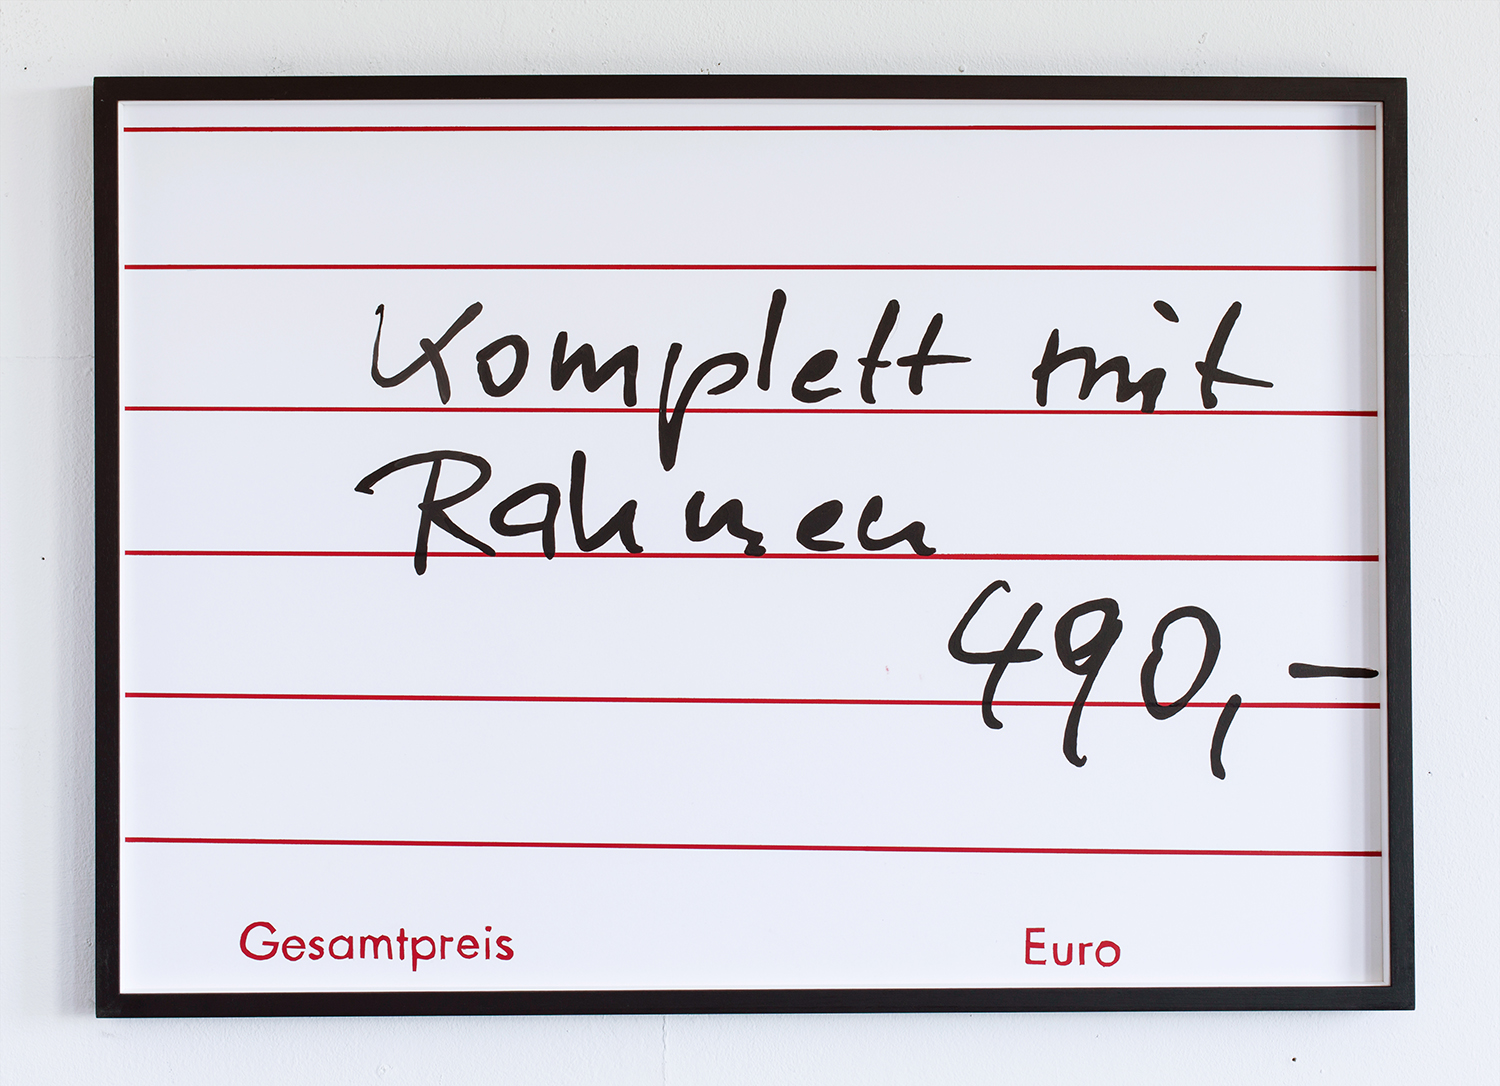 Komplett mit
Rahmen
490,-
Gesamtpreis Euro